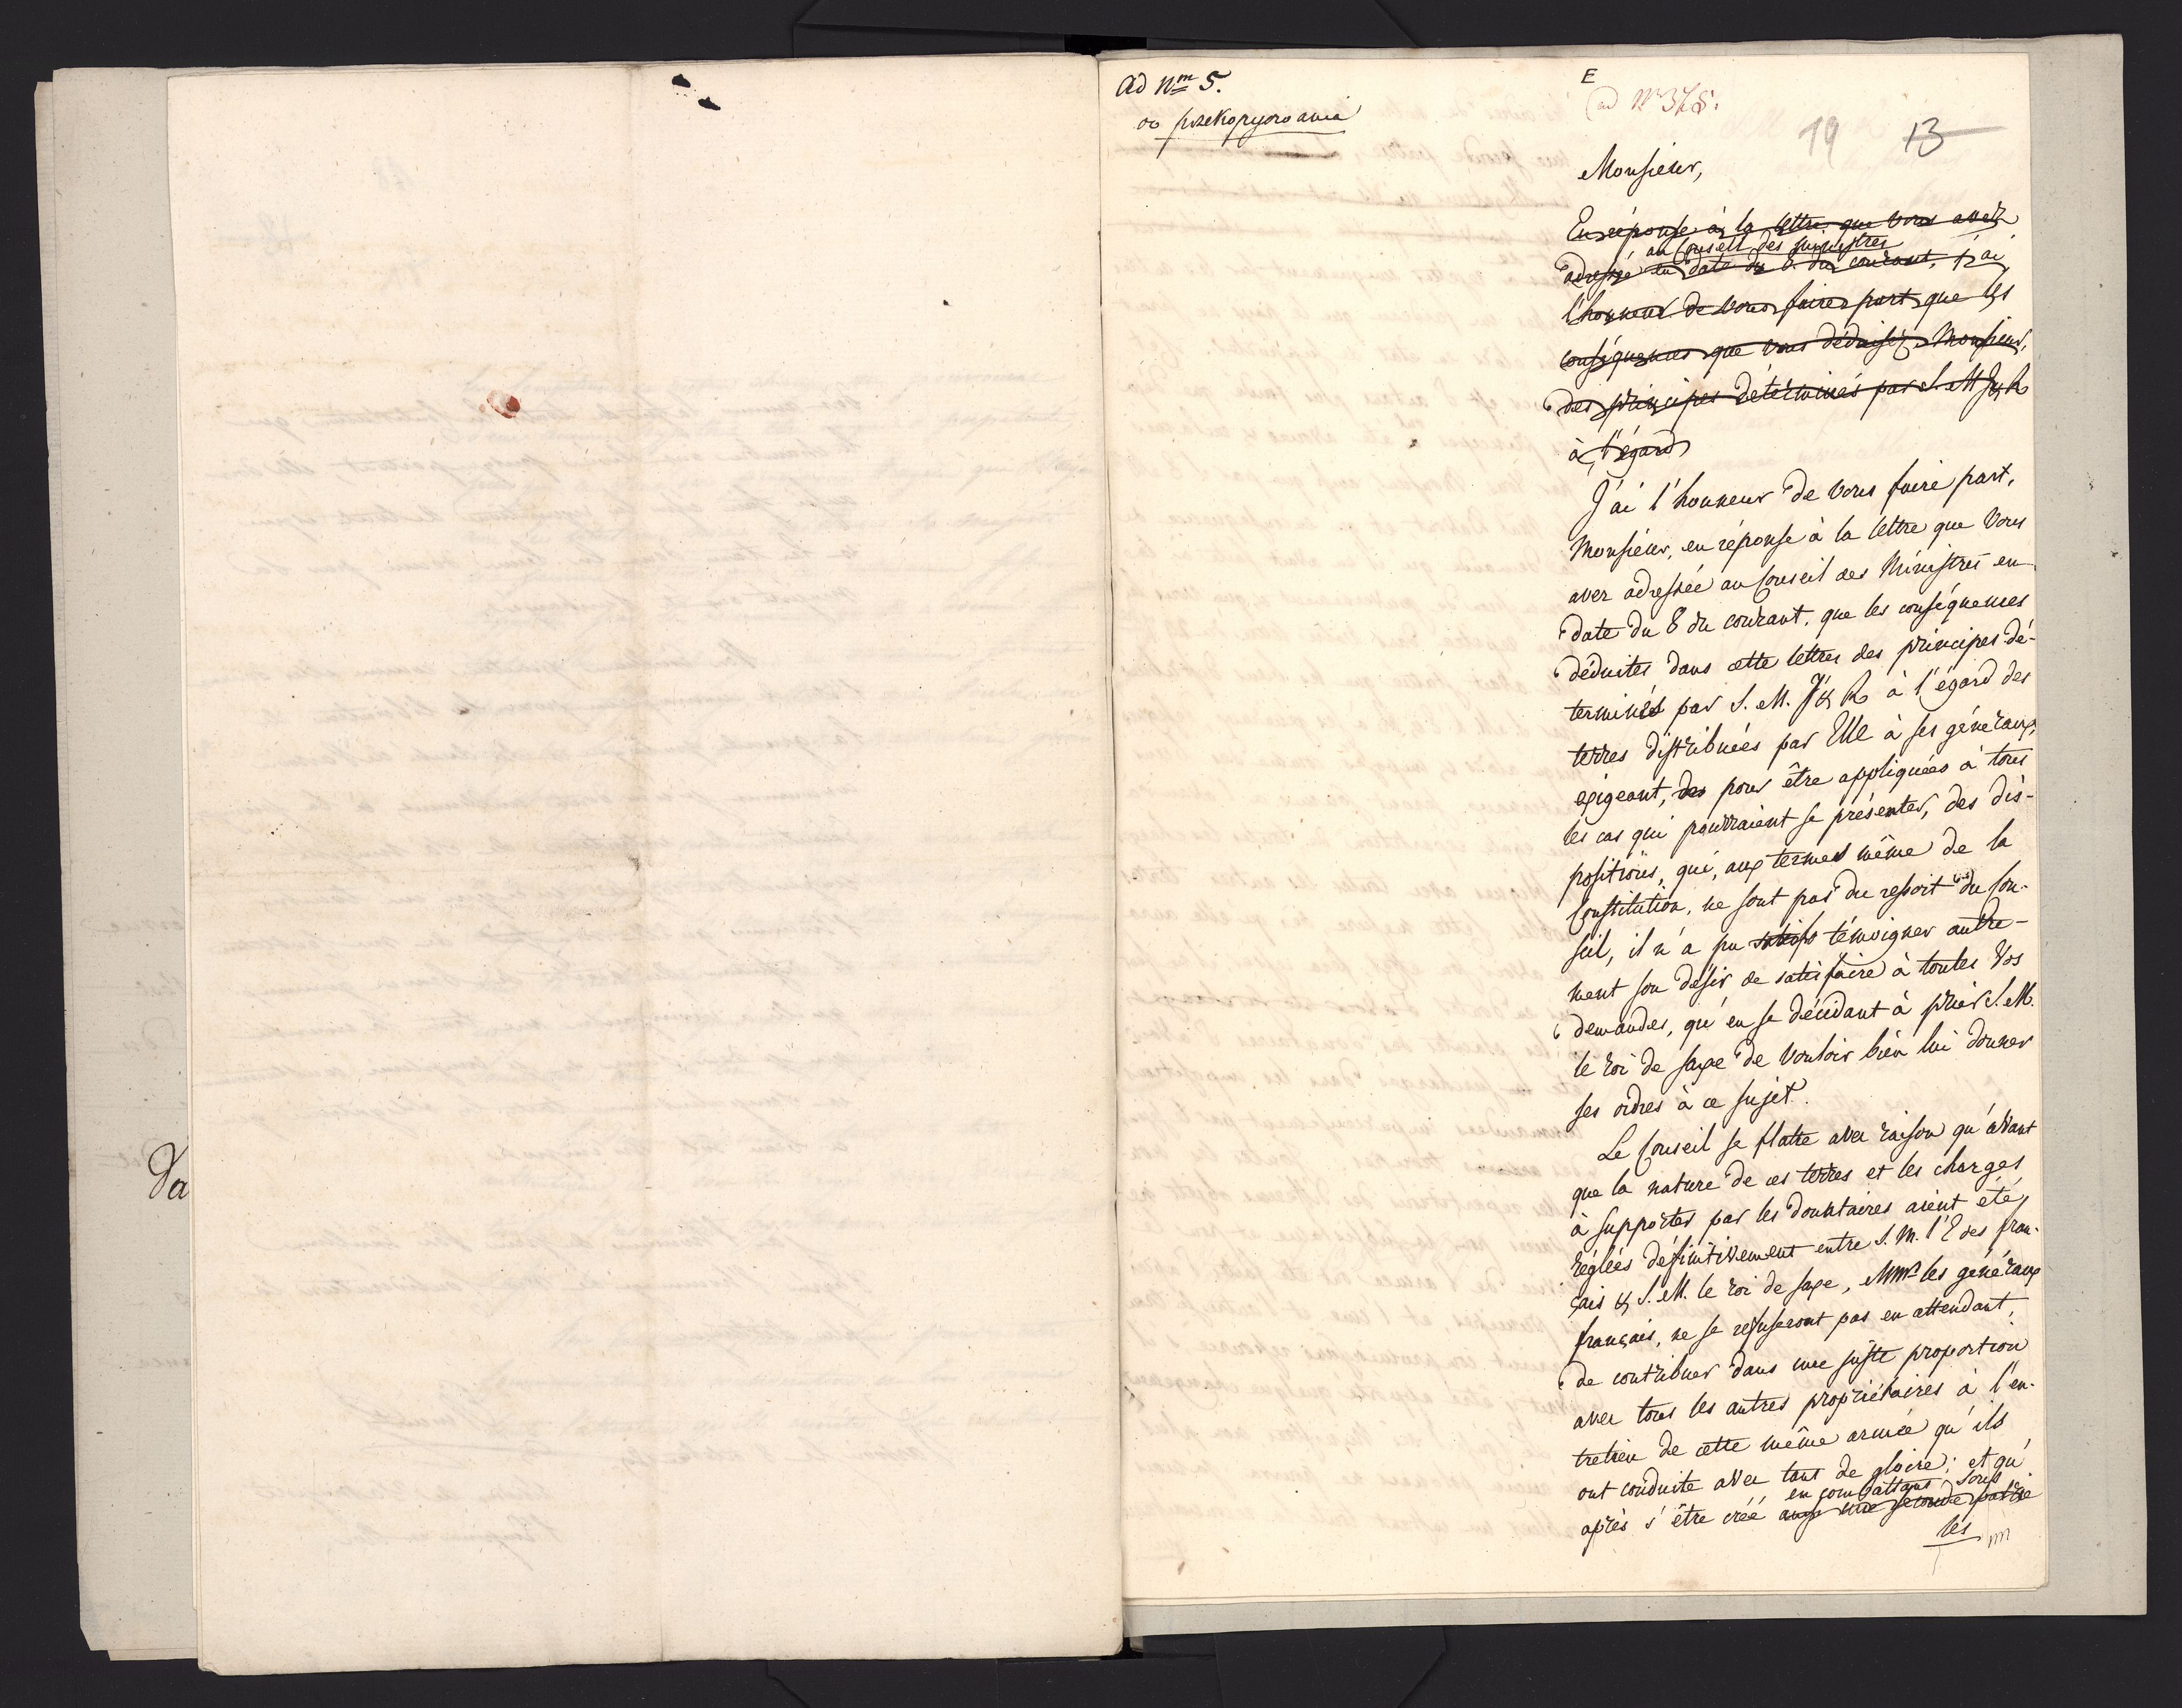 ad Nm 5.
do przekopiowania
E
ad No 375.
19 13
Monsieur,
En réponse à la lettre que vous avez
au Conseil des Ministres
adressé en date du 8 du courant, j'ai
l'honneur de vous faire part que les
conséquences que vous déduisez, Monsieur,
des principes déterminés par S. M. J & R
à l'égard
J'ai l'honneur de vous faire part,
Monsieur, en réponse à la lettre que Vous
avez adressée au Conseil des Ministres en
date du 8 du courant, que les conséquences
déduites dans cette lettre des principes dé-
terminés par S. M. J & R à l'égard des
terres distribuées par Elle à ses généraux,
exigeant, des pour être appliquées à tous
les cas qui pourraient se présenter, des dis-
positions, qui, aux termes même de la
Constitution, ne sont pas du ressort du Con-
seil, il n'a pu témoigner autre-
ment son désir de satisfaire à toutes Vos
demandes, qu'en se décidant à prier S. M.
le roi de Saxe de vouloir bien lui donner
ses ordres à ce sujet.
Le Conseil se flatte avec raison qu'avant
que la nature de ces terres et les charges
à supporter par les donataires aient été
réglées définitivement entre S. M. l'E des fran-
çais & S. M. le roi de Saxe, Mrs les généraux
français, ne se refuseront pas en attendant,
de contribuer dans une juste proportion
avec tous les autres propriétaires à l'en-
tretien de cette même armée qu'ils
ont conduite avec tant de gloire; et qu'
en combattant sous
après s'être créé une seconde patrie
les
Da